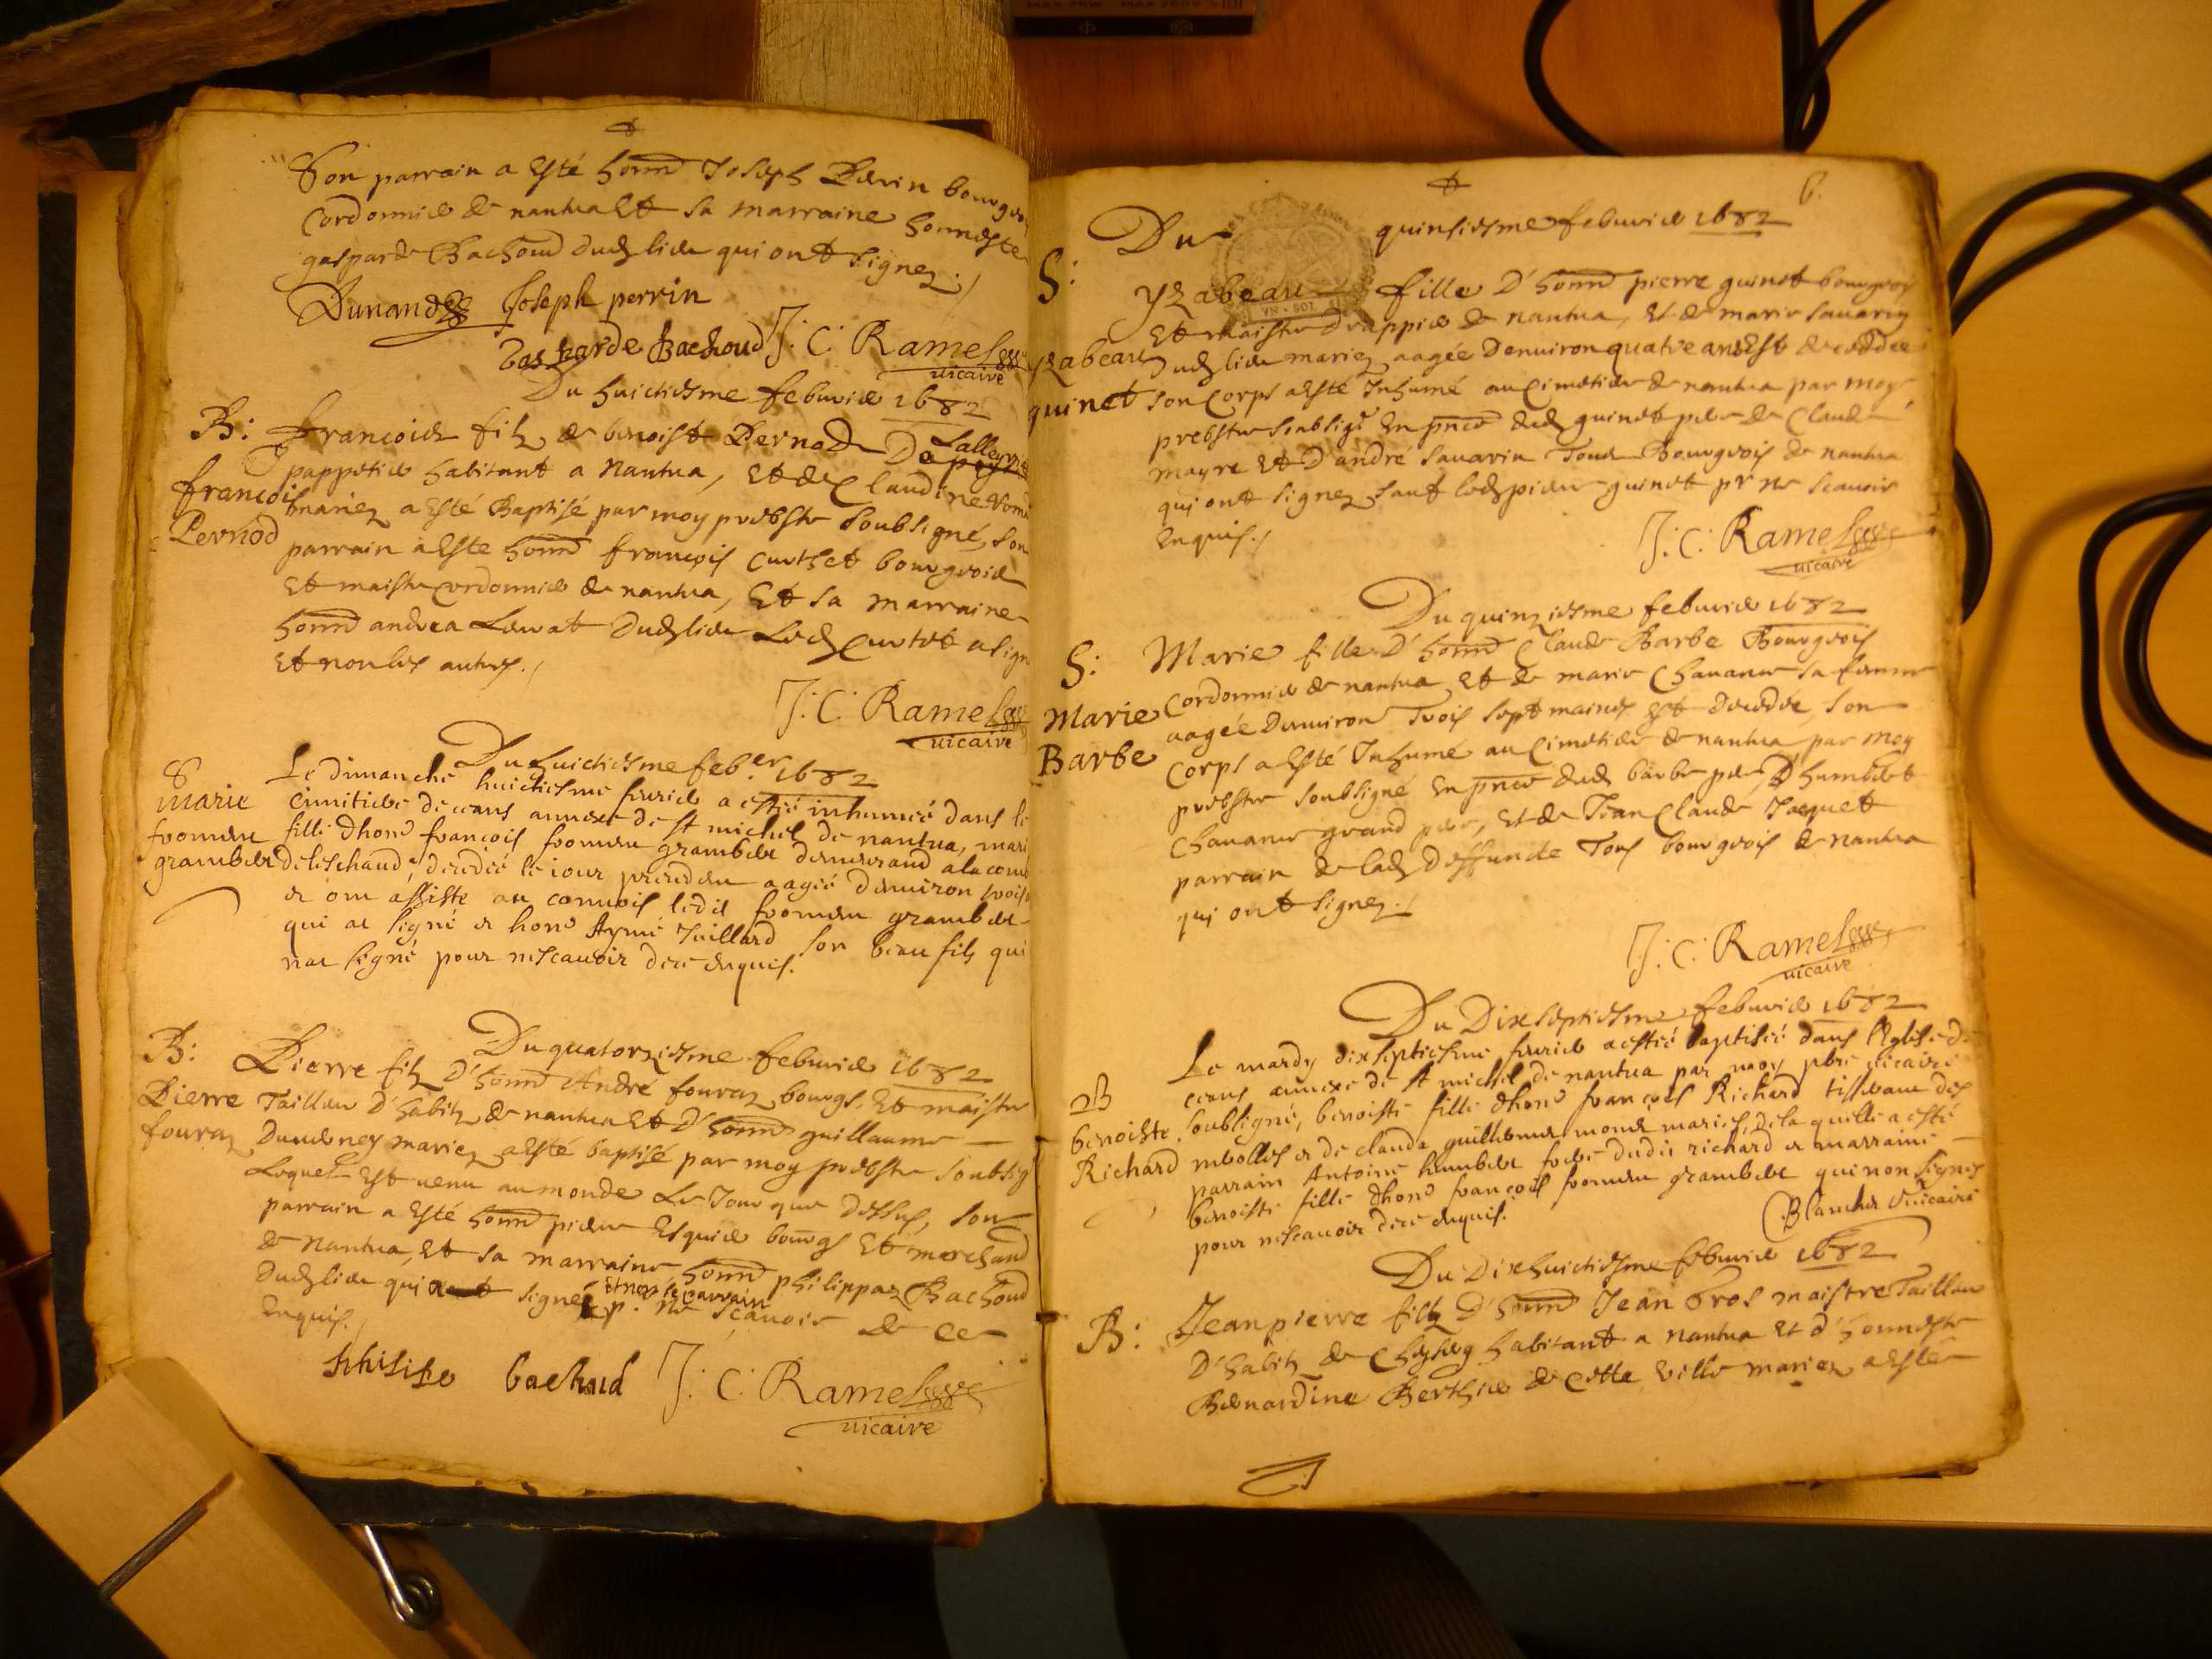 Son parrain a esté honn Joseph Perin bourgeois
Cordonnier de nantua Et sa marraine honneste
gasparde Bachoud dud lieu qui ont signez
Dunand Joseph perrin
Gasparde Bachoud J: C: Ramel
vicaire
Du huictiesme febuvier 1682
B: francois filz de benoist Pernod De
Lalleyriat
pappetier habitant a Nantua, et de Claudine
francois mariez a esté Baptisé par moy prebstre soubsigné, son
Pernod parrain a Este honn françois Curthet bourgeois
Et maistre cordonnier de nantua, Et sa marraine
honn andrea dud lieu Led Curtet a sign
Et non les autres.
J: C: Ramel
vicaire
Du huictiesme feber 1682
S Le dimanche huictiesme fevrier a esté inhumée dans le
marie cimitiere de ceans annexe de st michel de nantua, marie
fromen fille d'hon françois fromen grambert demeurand a la
grambert decedée le iour precedent aagée d'environ trois
et ont assisté au convois ledit fromen grambert
qui at signé et hon Aymé Juillard son beau filz qui
nat signé pour ne scavoir de ce enquis.
Du quatorziesme febuvier 1682
B: Pierre filz d'honn André fouraz bourgs. Et maistre
Pierre Tailleur d'habitz de nantua Et d'honn guillaume
fouraz mariez a esté baptisé par moy prebstre soubsig
Lequel Est venu au monde Le Jour que dessus, son
parrain a esté honn pierre Esquier bourgs Et marchand
de Nantua, Et sa marraine honn philippaz Bachoud
Et non le parrain
dud lieu qui a signé p. ne scavoir de ce
Enquis.
philipe bachud J: C: Ramel
vicaire
6.
Du quinsiesme febuvier 1682
S: yzabeau fille D'honn pierre guinet bourgeois
Et maistre drappier de nantua, Et de marie savarin
yzabeau dud lieu mariez aagée D'environ quatre ans Est decedée
quinet son Corps a esté Inhumé au Cimetiere de nantua par moy
prebstre soubsigé En pnce dud guinet pere de Claude
mayre Et D'andré savarin Tous Bourgeois de nantua
qui ont signez sauf led pierre guinet pr ne scavoir
Enquis.
J: C: Ramel
vicaire
Du quinziesme febuvier 1682
S: Marie fille D'honn Claude Barbe Bourgeois
Cordonnier de nantua Et de marie Chavanne sa femme
Marie aagée D'environ Trois septmaines Est decedée, son
Barbe Corps a Esté Inhumé au Cimetiere de nantua par moy
prebstre soubsigné En pnce dud barbe pere, D'humbert
Chavanne grand pere, Et de Jean Claude Jacquet
parrain de lad deffuncte Tous bourgeois de nantua
qui ont signez.
J: C: Ramel
vicaire
Du Dixseptiesme febuvier 1682
Le mardy dixseptiesme fevrier a esté baptisée dans l'Eglise de
B ceans annexe de st michel de nantua par moy pbre vicaire
benoiste soubsigné, benoiste fille d'hon françois Richard tisseran des
Richard et de claudaz mariés, de laquelle a esté
parrain Antoine humbert frere dudit richard et marraine
benoiste fille d'hon françois fromen grambert qui non signés
pour ne scavoir de ce enquis.
Blanchet Vicaire
Du Dixhuictiesme febuvier 1682
B: Jeanpierre filz D'honn Jean Gros maistre Tailleur
D'habitz de habitant a Nantua Et d'honneste
Bernardine Berthier de cette ville mariez a esté